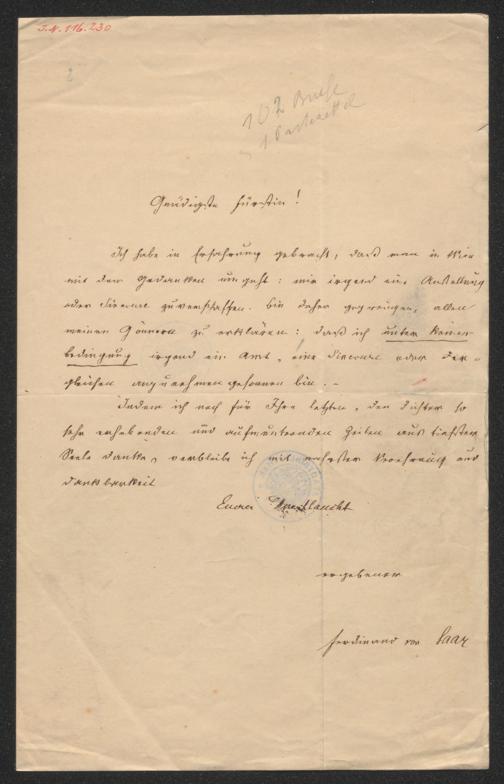 J.N. 116.230
2
102 Briefe
1 Postzettel
Gnädigste Fürstin!
Ich habe in Erfahrung gebracht, daß man in Wien
mit dem Gedanken umgeht: mir irgend eine Anstellung
oder Sinecur zu verschaffen. Bin daher gezwungen, allen
meinen Gönnern zu erklären: daß ich unter keiner
Bedingung irgend ein Amt, eine Sinecure oder der-
gleichen anzunehmen gesonnen bin. –
Indem ich noch für Ihre letzten, den Dichter so
sehr erhebenden und aufmunternden Zeilen aus tiefster
Seele danke, verbleibe ich mit wahrster Verehrung und
Dankbarkeit
Euerer Durchlaucht
ergebener
Ferdinand von Saar